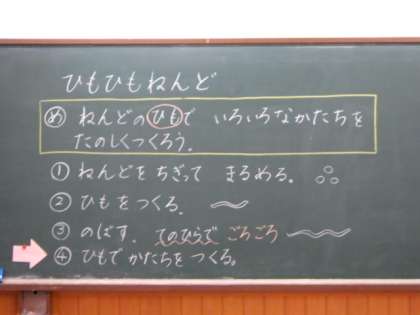 ひもひもねんど
め ねんどのひもで いろいろなかたちを
たのしくつくろう.
① ねんどを ちぎって まるめる。
② ひもをつくる.
③ のばす. てのひらで ごろごろ
④ ひもで かたちを つくる。